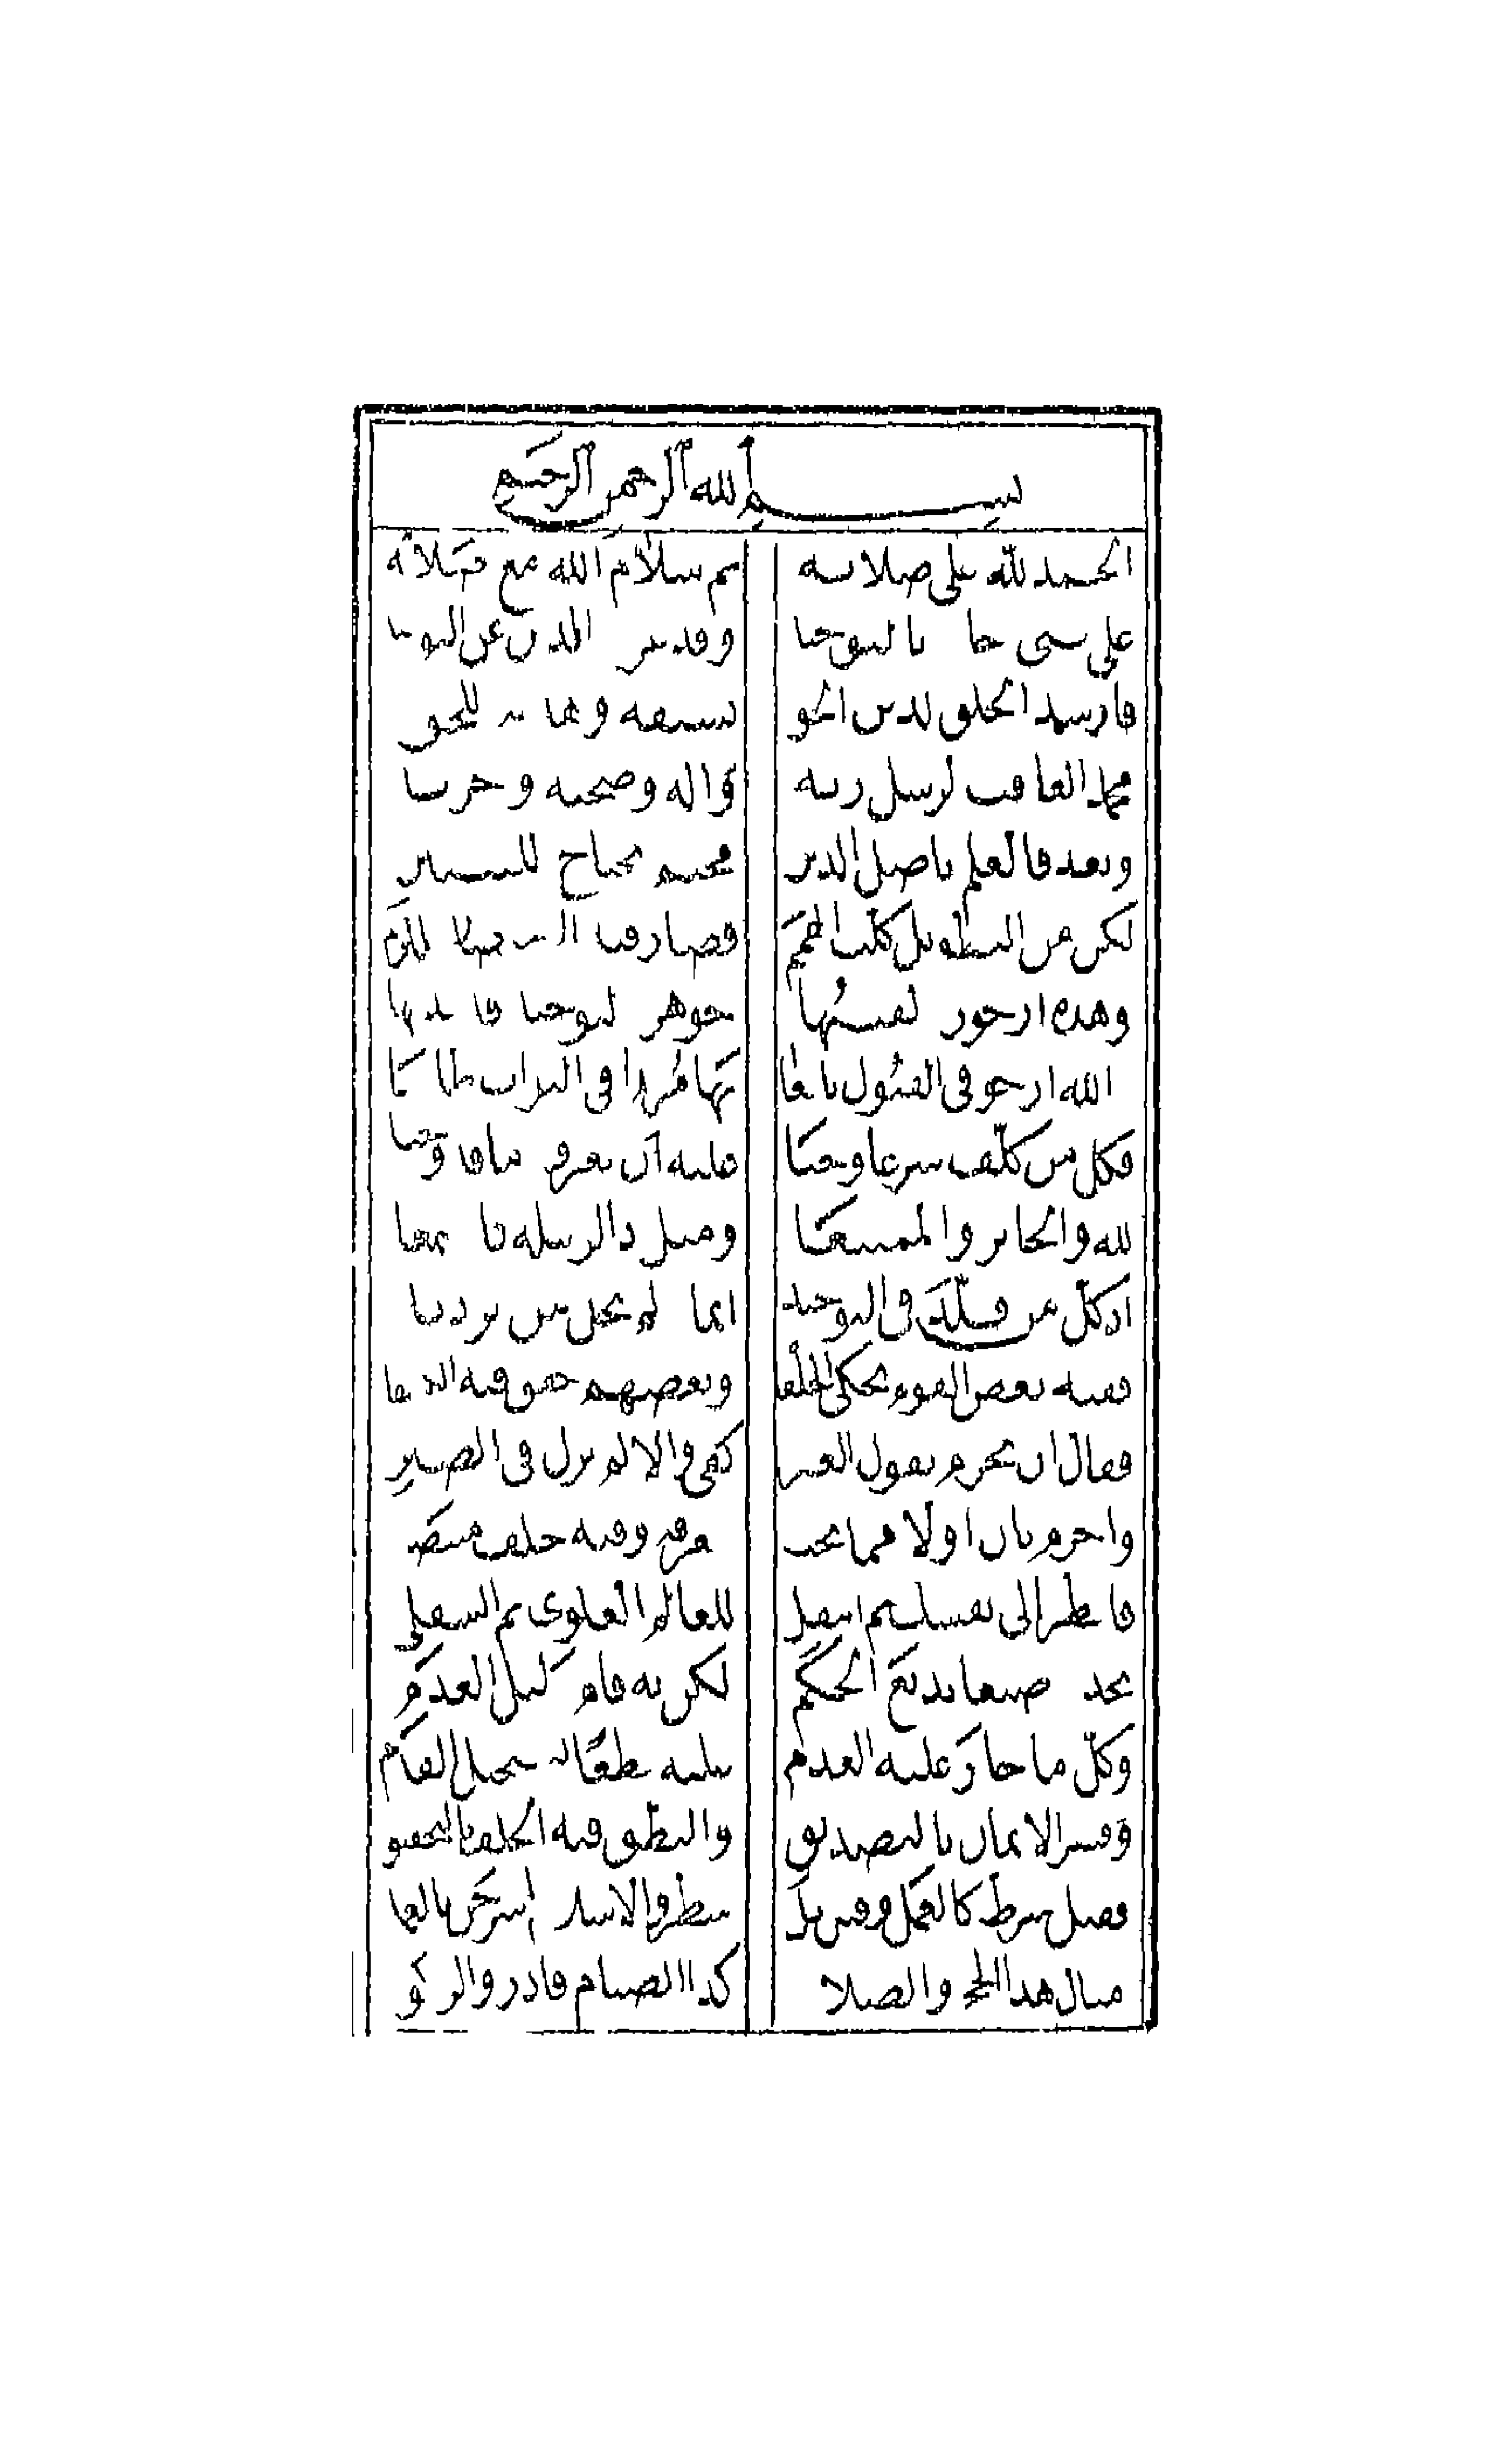 بسم الله الرحمن الرحيم
الحمد لله على صلاته ثم سلام الله مع صلاته
على نبي جاء بالتوحيد وقد عرى الدين عن التوحيد
فارشد الخلق لدين الحق بسيفه وهديه للحق
محمد العاقب لرسل ربه واله وصحبه وحزبه
وبعد فالعلم باصل الدين محتم يحتاج للتبيين
لكن من التطويل كلت الهمم فصار فيه الاختصار ملتزم
وهذه ارجوزة لقبتها جوهرة التوحيد قد هذبتها
الله ارجو في القبول نافعا بها مريدا في الثواب طامعا
فكل من كلّف شرعا وجبا عليه ان يعرف ما قد وجبا
لله والجائز والممتنعا ومثل ذا لرسله فاستمعا
اذ كلّ من قلّد في التوحيد ايمانه لم يخل من ترديد
ففيه بعض القوم يحكي الخلفا وبعضهم حقق فيه الكشفا
فقال ان يجزم بقول الغير كفى والا لم يزل في الضير
واجزم بان اولا مما يجب معرفة وفيه خلف منتصب
فانظر الى نفسك ثم انتقل للعالم العلوي ثم السفلي
تجد به صنعا بديع الحكم لكن به قام دليل العدم
وكلّ ما جاز عليه العدم عليه قطعًا يستحيل القدم
وفسر الايمان بالتصديق والنطق فيه الخلف بالتحقيق
فقيل شرط كالعمل وقيل بل شطر والاسلام اشرحن بالعمل
مثال هذا الحج والصلاة كذا الصيام فادر والزكاة